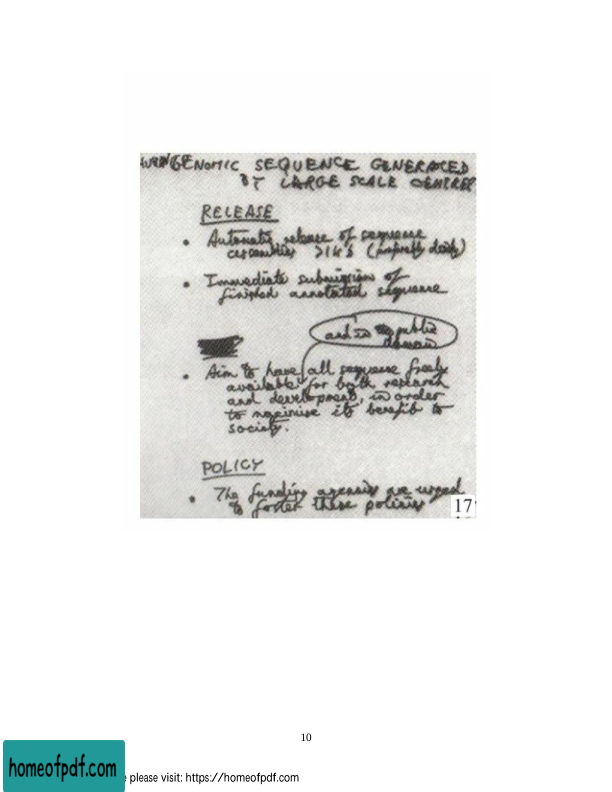 HUMAN GENOMIC SEQUENCE GENERATED
BY LARGE SCALE CENTRES
RELEASE
• Automatic release of sequence
assemblies >1kb (preferably daily)
• Immediate submission of
finished annotated sequence
and in public
domain
• Aim to have all sequence freely
available for both research
and development, in order
to maximise its benefit to
society.
POLICY
• The funding agencies are urged
to foster these policies
17
10
homeofpdf.com
e please visit: https://homeofpdf.com